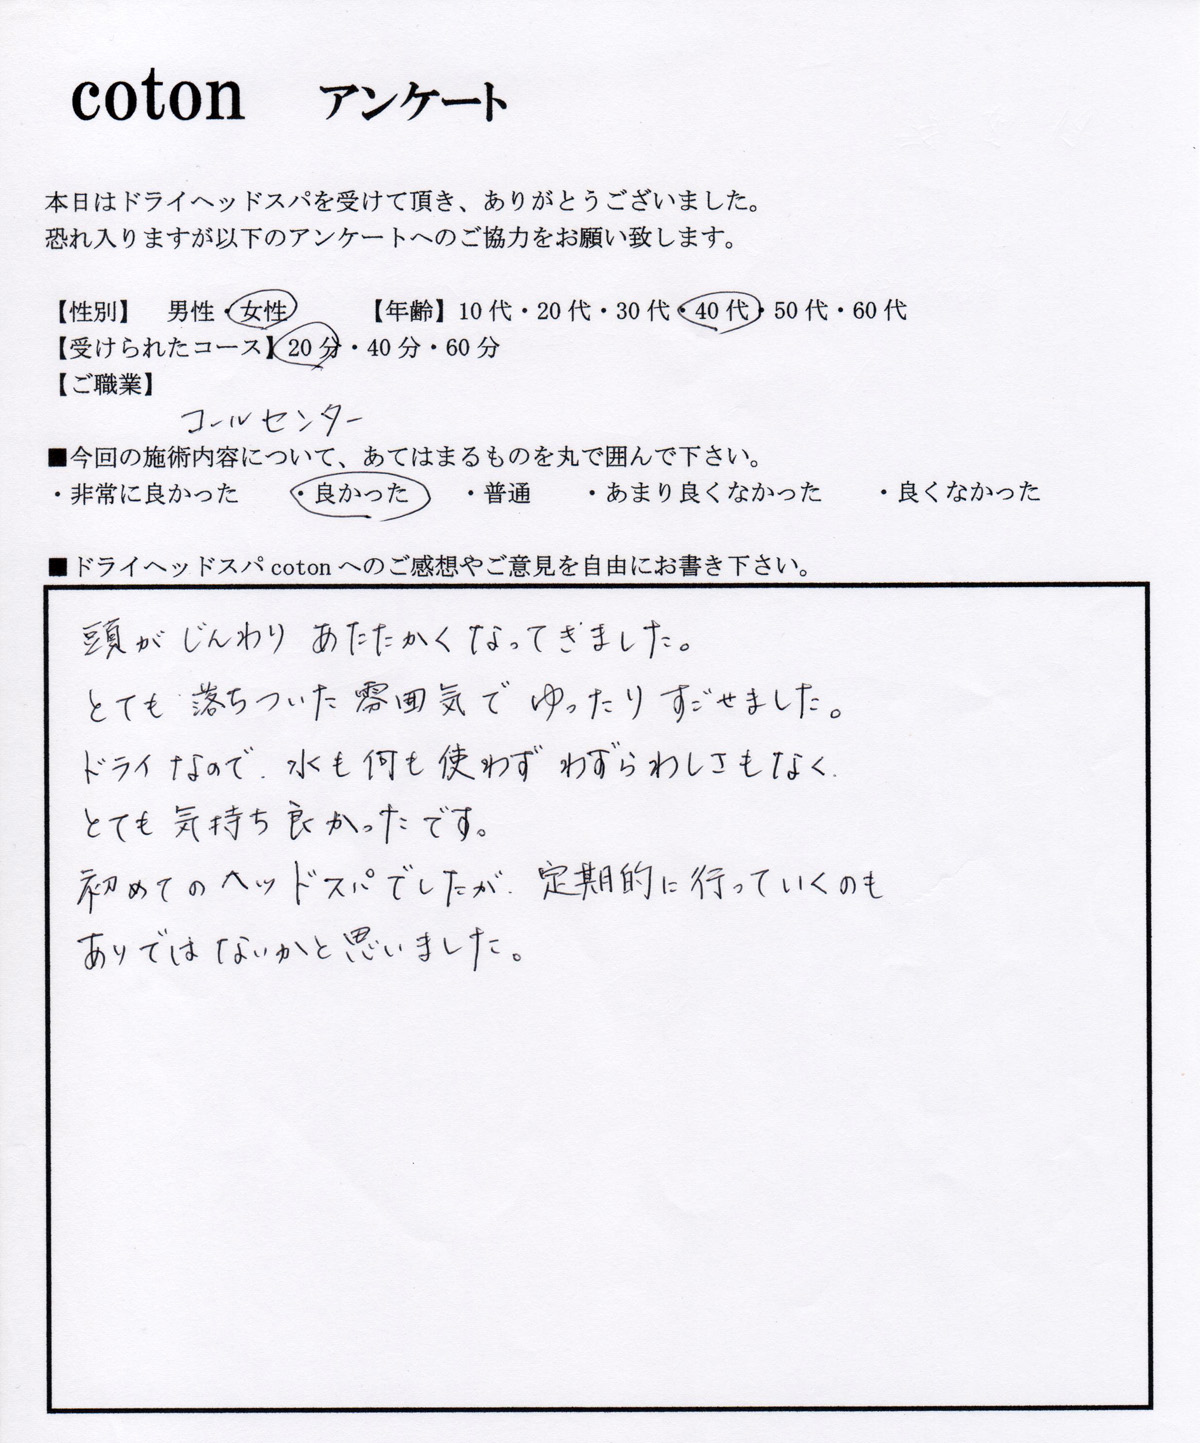 coton アンケート
本日はドライヘッドスパを受けて頂き、ありがとうございました。
恐れ入りますが以下のアンケートへのご協力をお願い致します。
【性別】 男性・女性 【年齢】10代・20代・30代・40代・50代・60代
【受けられたコース】20分・40分・60分
【ご職業】
コールセンター
■今回の施術内容について、あてはまるものを丸で囲んで下さい。
・非常に良かった ・良かった ・普通 ・あまり良くなかった ・良くなかった
■ドライヘッドスパcotonへのご感想やご意見を自由にお書き下さい。
頭がじんわりあたたかくなってきました。
とても落ちついた雰囲気でゆったりすごせました。
ドライなので、水も何も使わずわずらわしさもなく、
とても気持ち良かったです。
初めてのヘッドスパでしたが、定期的に行っていくのも
ありではないかと思いました。